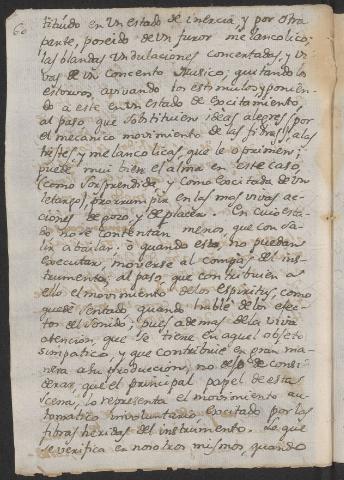 60
tituido en un estado de inercia, y por otra
parte, poseido de un furor melancolico;
las blandas undulaciones concentadas, y vi
vas de un concento Musico, quitando los
estorvos, avivando los estimulos y ponien
do a este en un estado de excitamiento,
al paso que sobstituien ideas alegres (por
el mecanico movimiento de las fibras) a las
tristes, y melancolicas, que le oprimen;
puede mui bien el alma en este caso,
(como sorprendida, y como excitada de un
letargo) prorrumpir en las mas vivas ac-
ciones de gozo, y de placer. En cuio esta-
do no se contentan menos, que con sa-
lir a bailar. o quando esto, no puedan
executar, moverse al compas del ins-
trumento, al paso, que contribuien a
ello el movimiento de los espiritus, como
quede sentado quando hablé de los efec-
tos del sonido; pues ademas de la viva
atencion, que se tiene en aquel objeto
simpatico, y que contribuie en gran ma-
nera a su produccion, no de de consi-
derar, que el principal papel de esta
scena, lo representa el movimiento au-
tomatico involuntario excitado por las
fibras heridas del instrumento. Lo que
se verifica en nosotros mismos, quando